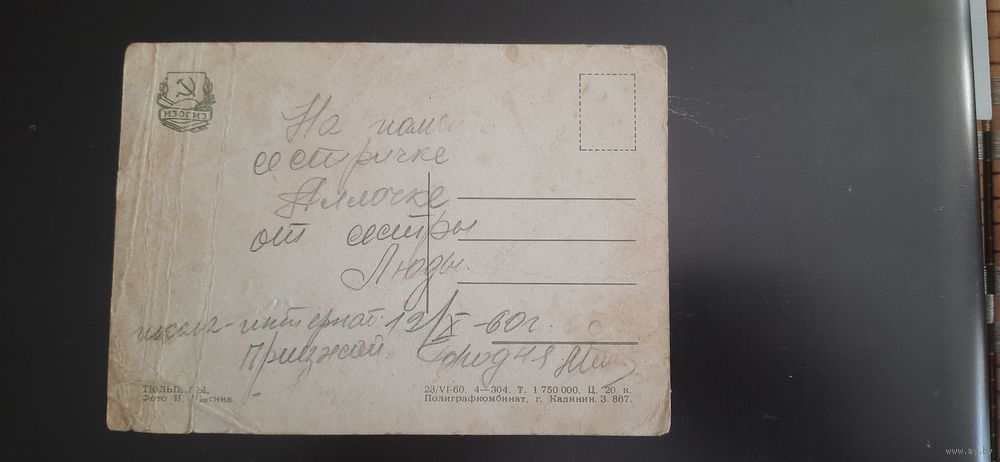 ИЗОГИЗ
На
сестричке
Аллочке
от сестры
Люды.
школа-интернат. 19/X-60г.
Приезжай.
ТЮЛЬПАНЫ.
Фото И.
28/VI-60. 4—304. Т. 1 750 000. Ц. 20 к.
Полиграфкомбинат, г. Калинин. З. 867.
www.ay.by